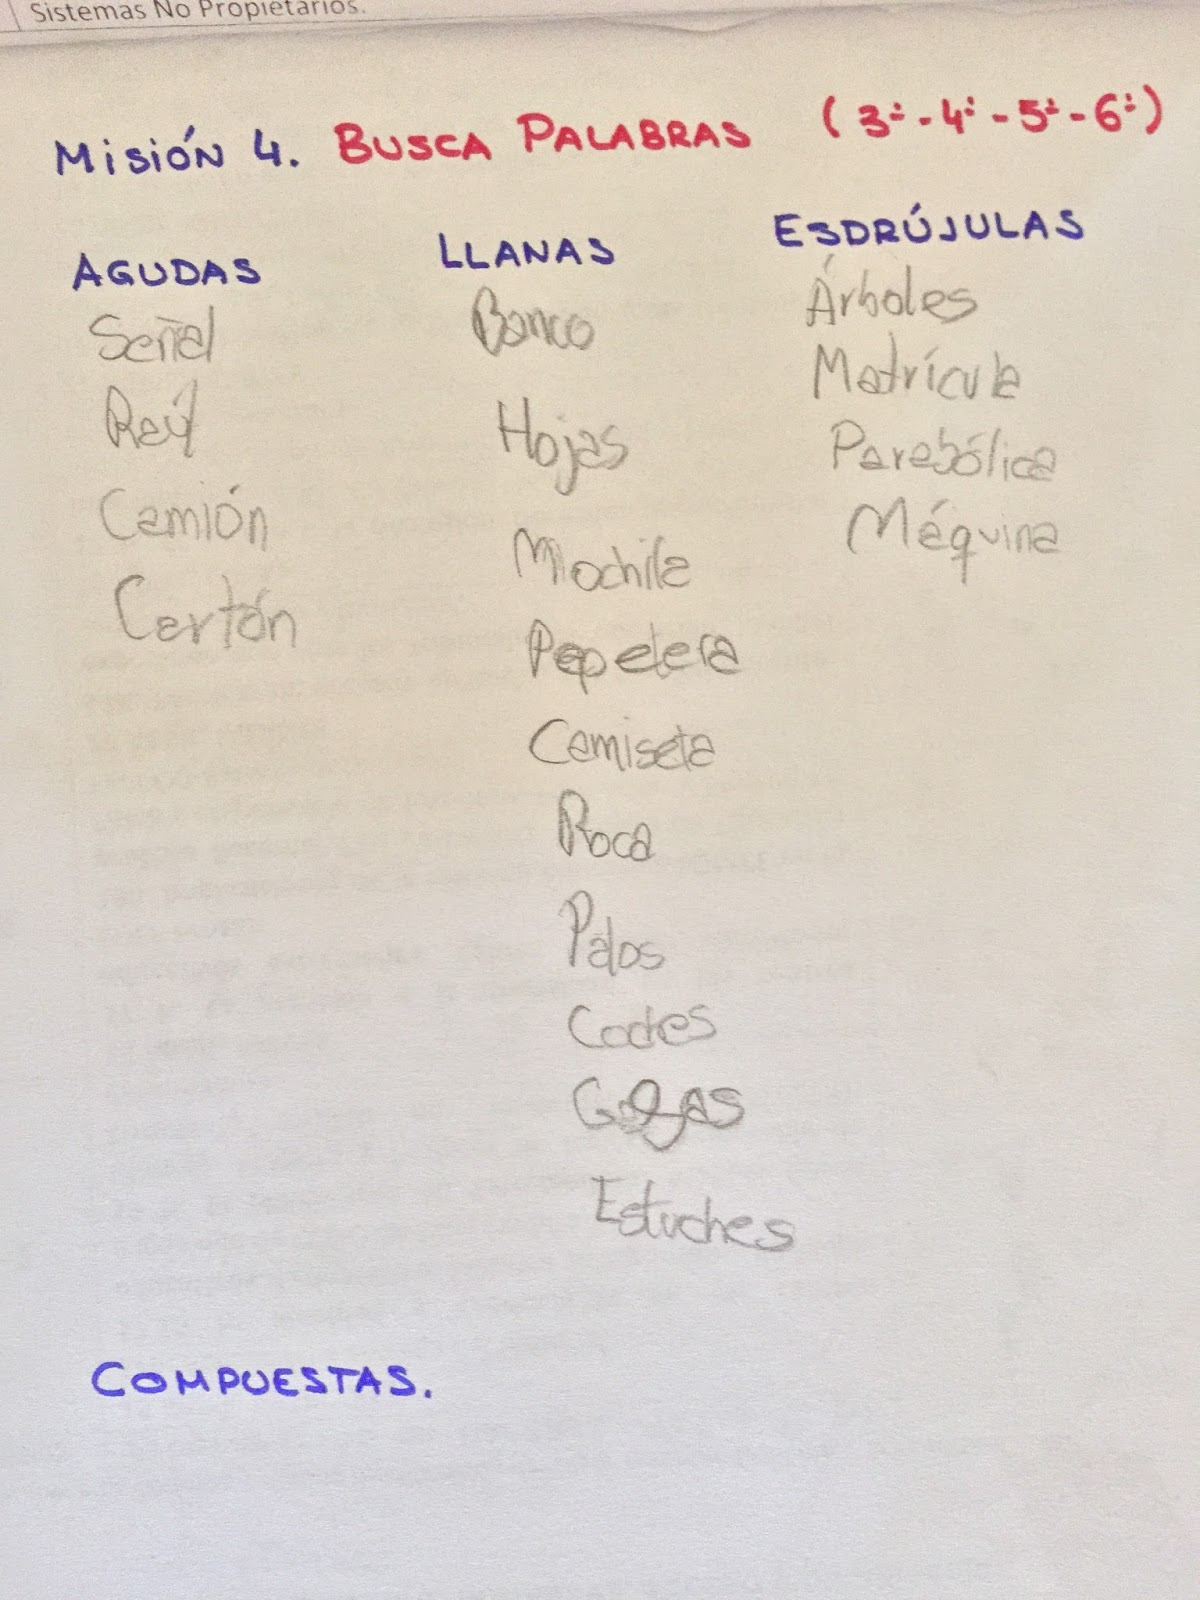 Sistemas No Propietarios.
Misión 4. BUSCA PALABRAS (3º-4º-5º-6º)
AGUDAS
Señal
Camión
Cartón
LLANAS
Banco
Hojas
Mochila
Papelera
Camiseta
Roca
Palos
Coches
Gafas
Estuches
ESDRÚJULAS
Árboles
Matrícula
Parabólica
Máquina
COMPUESTAS.